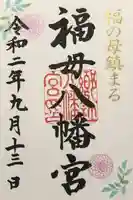 福の母鎮まる
福母八幡宮
令和二年九月十三日